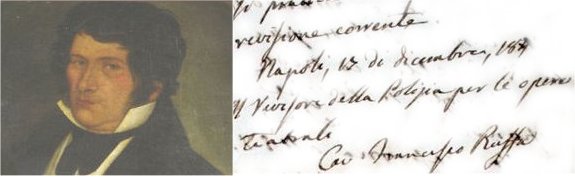 revisione corrente
Napoli, 12 di dicembre, 18
Il Revisore della Polizia per le opere
teatrali
Cav Francesco Ruffa